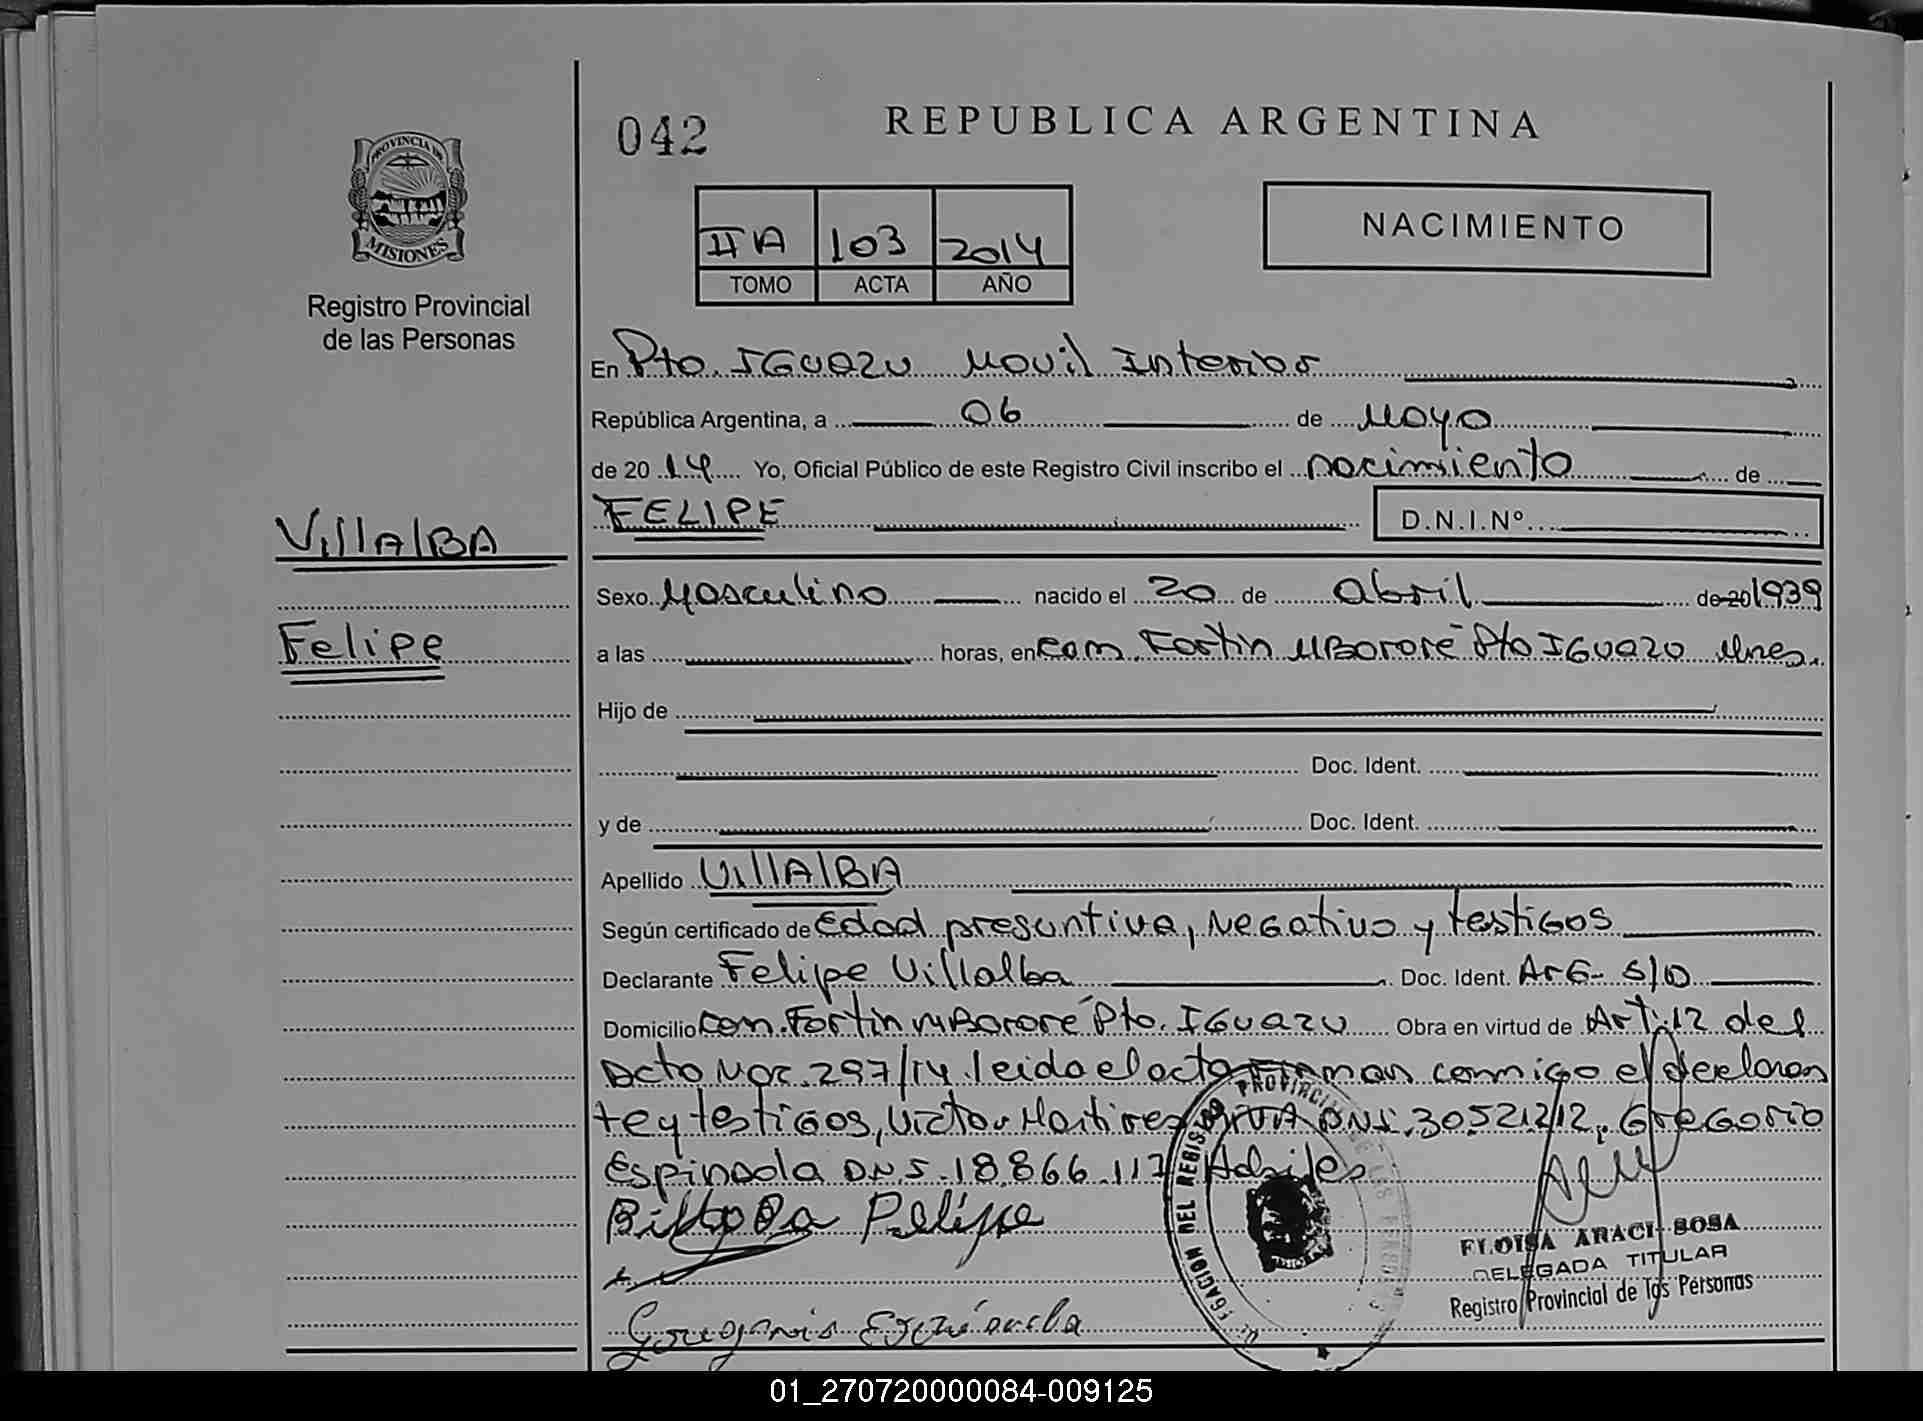 042
REPUBLICA ARGENTINA
PROVINCIA DE
MISIONES
Registro Provincial
de las Personas
IIA 103 2014
TOMO ACTA AÑO
NACIMIENTO
En Pto. IGUAZU Movil Interior
República Argentina, a 06 de Mayo
de 20 14 Yo, Oficial Público de este Registro Civil inscribo el nacimiento de
Villalba
FELIPE D.N.I.Nº
Sexo Masculino nacido el 20 de abril de 20 1939
Felipe
a las horas, en com. Fortin MBororé Pto IGUAZU Mnes.
Hijo de
Doc. Ident.
y de Doc. Ident.
Apellido VillAlBA
Según certificado de Edad presuntiva, Negativo y testigos
Declarante Felipe Villalba Doc. Ident. ArG- S/D
Domicilio com. Fortin MBororé Pto. IGUAZU Obra en virtud de Art. 12 del
Dcto Nac. 297/14 leido el acta Firman conmigo el declaran
te y testigos, Victor Martires DNI. 30521212, Gregorio
Espindola DNI. 18.866.117
Felipe
DELEGACION DEL REGISTRO PROVINCIAL DE LAS PERSONAS
ELOISA ARACI SOSA
DELEGADA TITULAR
Registro Provincial de las Personas
01_270720000084-009125